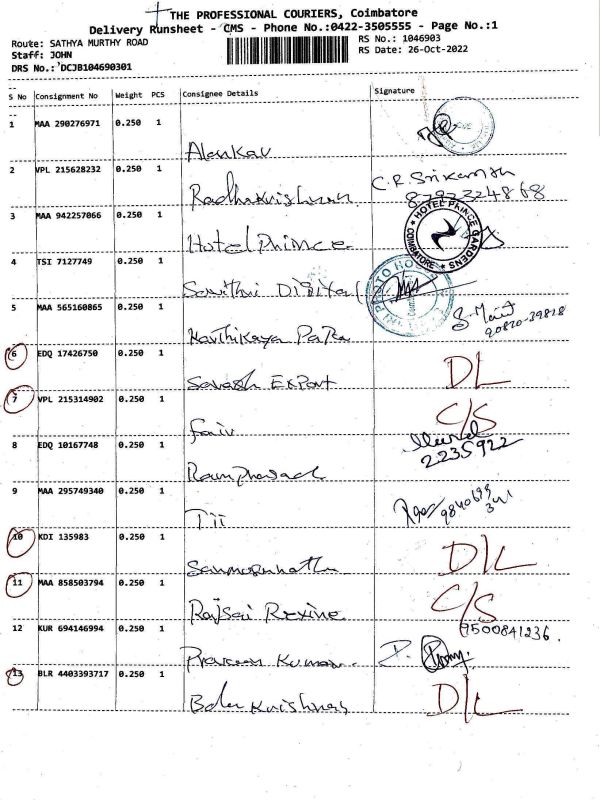 THE PROFESSIONAL COURIERS, Coimbatore
Delivery Runsheet - CMS - Phone No.:0422-3505555 - Page No.:1
Route: SATHYA MURTHY ROAD RS No.: 1046903
Staff: JOHN RS Date: 26-Oct-2022
DRS No.: DCJB104690301
S No Consignment No Weight PCS Consignee Details Signature
1 MAA 290276971 0.250 1
Alankar
2 VPL 215628232 0.250 1 C.R. Srikanth
Radhakrishnan
3 MAA 942257066 0.250 1 HOTEL PRINCE GARDENS COIMBATORE
Hotel Prince
4 TSI 7127749 0.250 1
Savithri Digital
5 MAA 565160865 0.250 1
Karthikaya 90870-39828
6 EDQ 17426750 0.250 1 DL
Export
7 VPL 215314902 0.250 1 C/S
Fair
8 EDQ 10167748 0.250 1 2235922
Ramprasad
9 MAA 295749340 0.250 1
TII
10 KDI 135983 0.250 1 D/L
11 MAA 858503794 0.250 1 C/S
Rajsai Rexine
12 KUR 694146994 0.250 1 9500841236.
Praveen Kumar
13 BLR 4403393717 0.250 1 D/L
Bala Krishnan